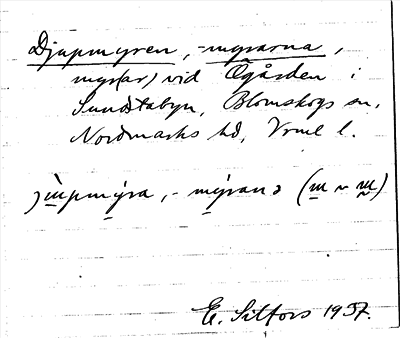 Djupmyren, -myrarna,
myr(ar) vid Ögården i
Sundstabyn, Blomskogs sn,
Nordmarks hd, Vrml l.
E. Sitfors 1937.